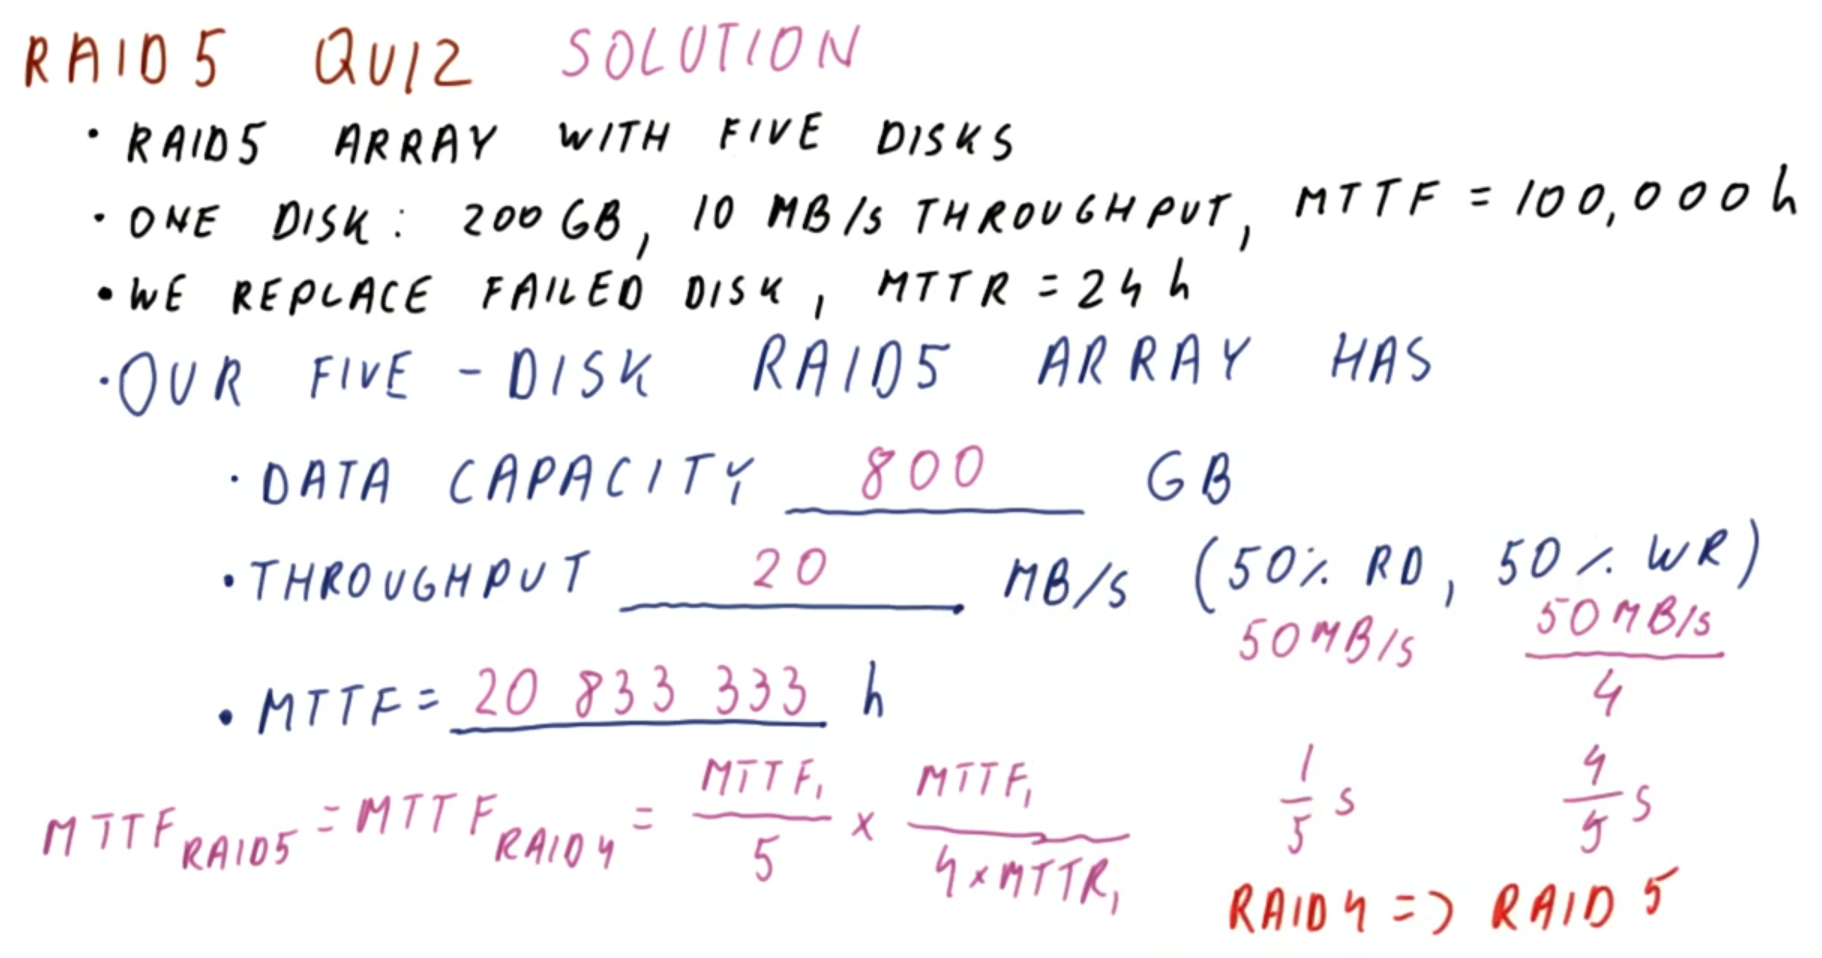 RAID5 QUIZ SOLUTION
• RAID5 ARRAY WITH FIVE DISKS
• ONE DISK: 200 GB, 10 MB/s THROUGHPUT, MTTF = 100,000 h
• WE REPLACE FAILED DISK, MTTR = 24 h
• OUR FIVE-DISK RAID5 ARRAY HAS
• DATA CAPACITY 800 GB
• THROUGHPUT 20 MB/s (50% RD, 50% WR)
50MB/s 50MB/s / 4
• MTTF = 20 833 333 h
MTTF RAID5 = MTTF RAID4 = MTTF₁ / 5 × MTTF₁ / 4×MTTR₁
1/5 s 4/5 s
RAID4 => RAID5